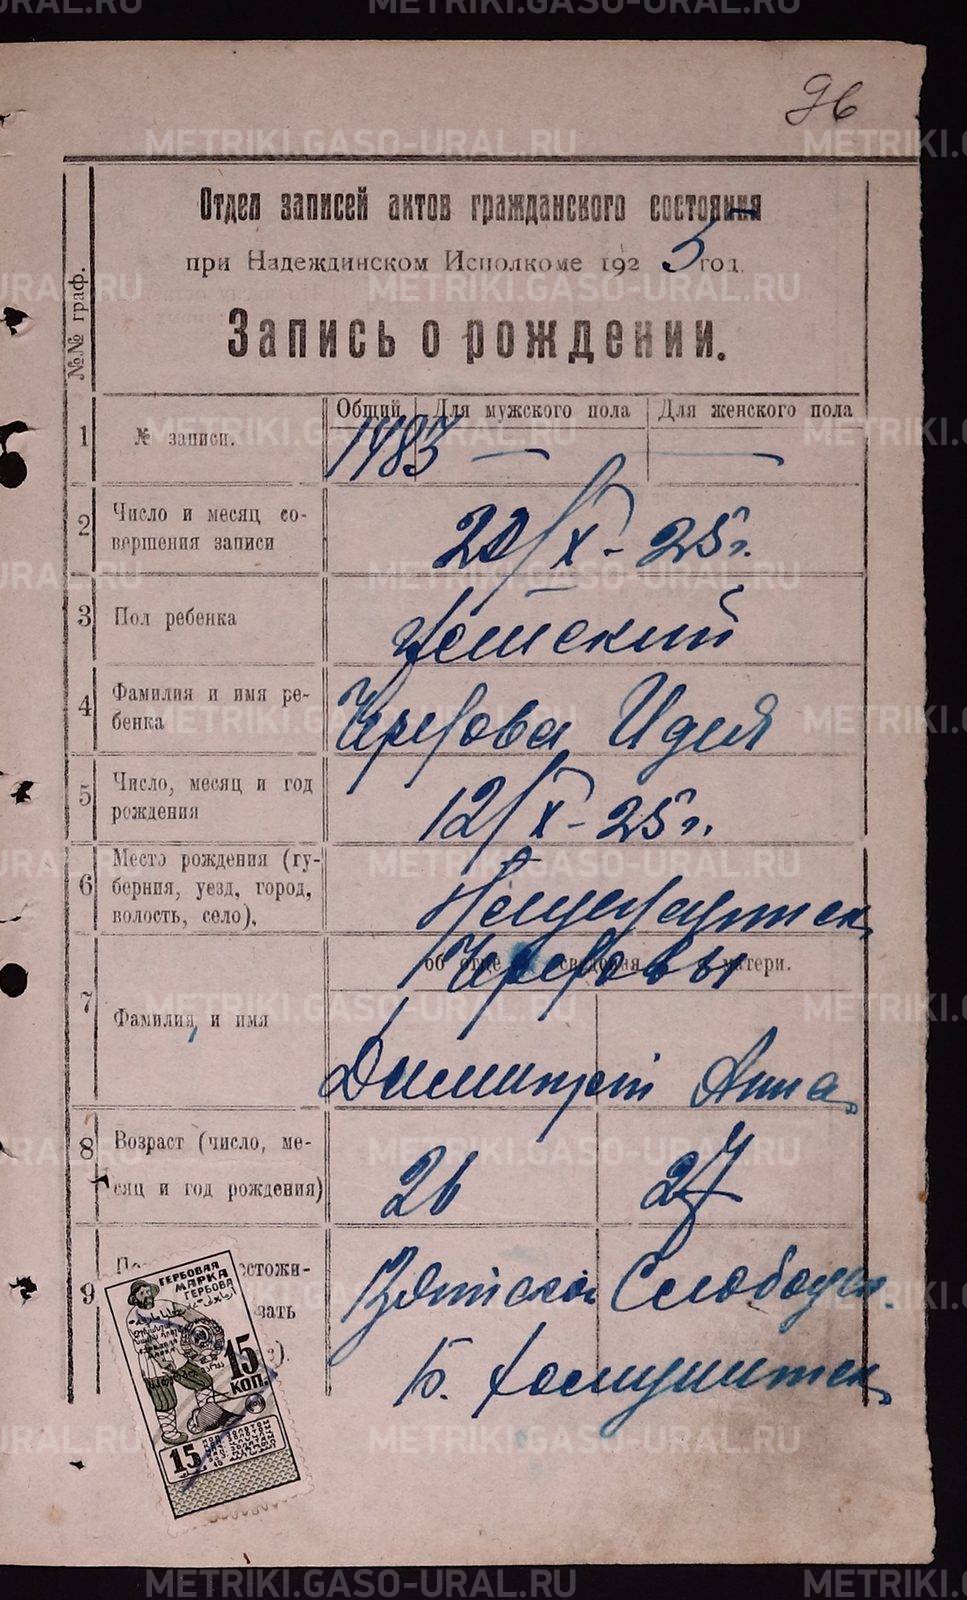 96
Отдел записей актов гражданского состояния
при Надеждинском Исполкоме 1925 год.
Запись о рождении.
№№ граф.
Общий Для мужского пола Для женского пола
1 № записи. 1483 — —
2 Число и месяц со-
вершения записи
22/X - 25 г.
3 Пол ребенка
женский
4 Фамилия и имя ре-
бенка
Идея
5 Число, месяц и год
рождения
12/X - 25 г.
6 Место рождения (гу-
берния, уезд, город,
волость, село).
об отце сведения матери.
7 Фамилия, и имя
Димитрий Анна
8 Возраст (число, ме-
сяц и год рождения)
26 27
9 По стожи-
вать
Вятская Слободск.
Б. Холуницк.
ГЕРБОВАЯ
МАРКА
ГЕРБОВА
15
КОП.
15
METRIKI.GASO-URAL.RU